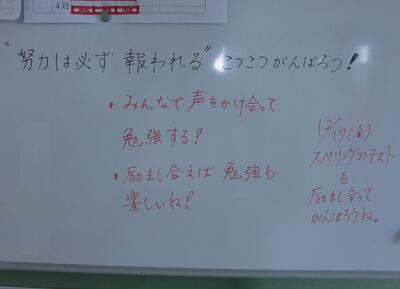 4班
"努力は必ず報われる"こつこつがんばろう!
* みんなで声をかけ合って
勉強する!
* 励まし合えば勉強も
楽しいね!
12/17(金)
スペリングコンテスト
も
励まし合って
がんばろうね。